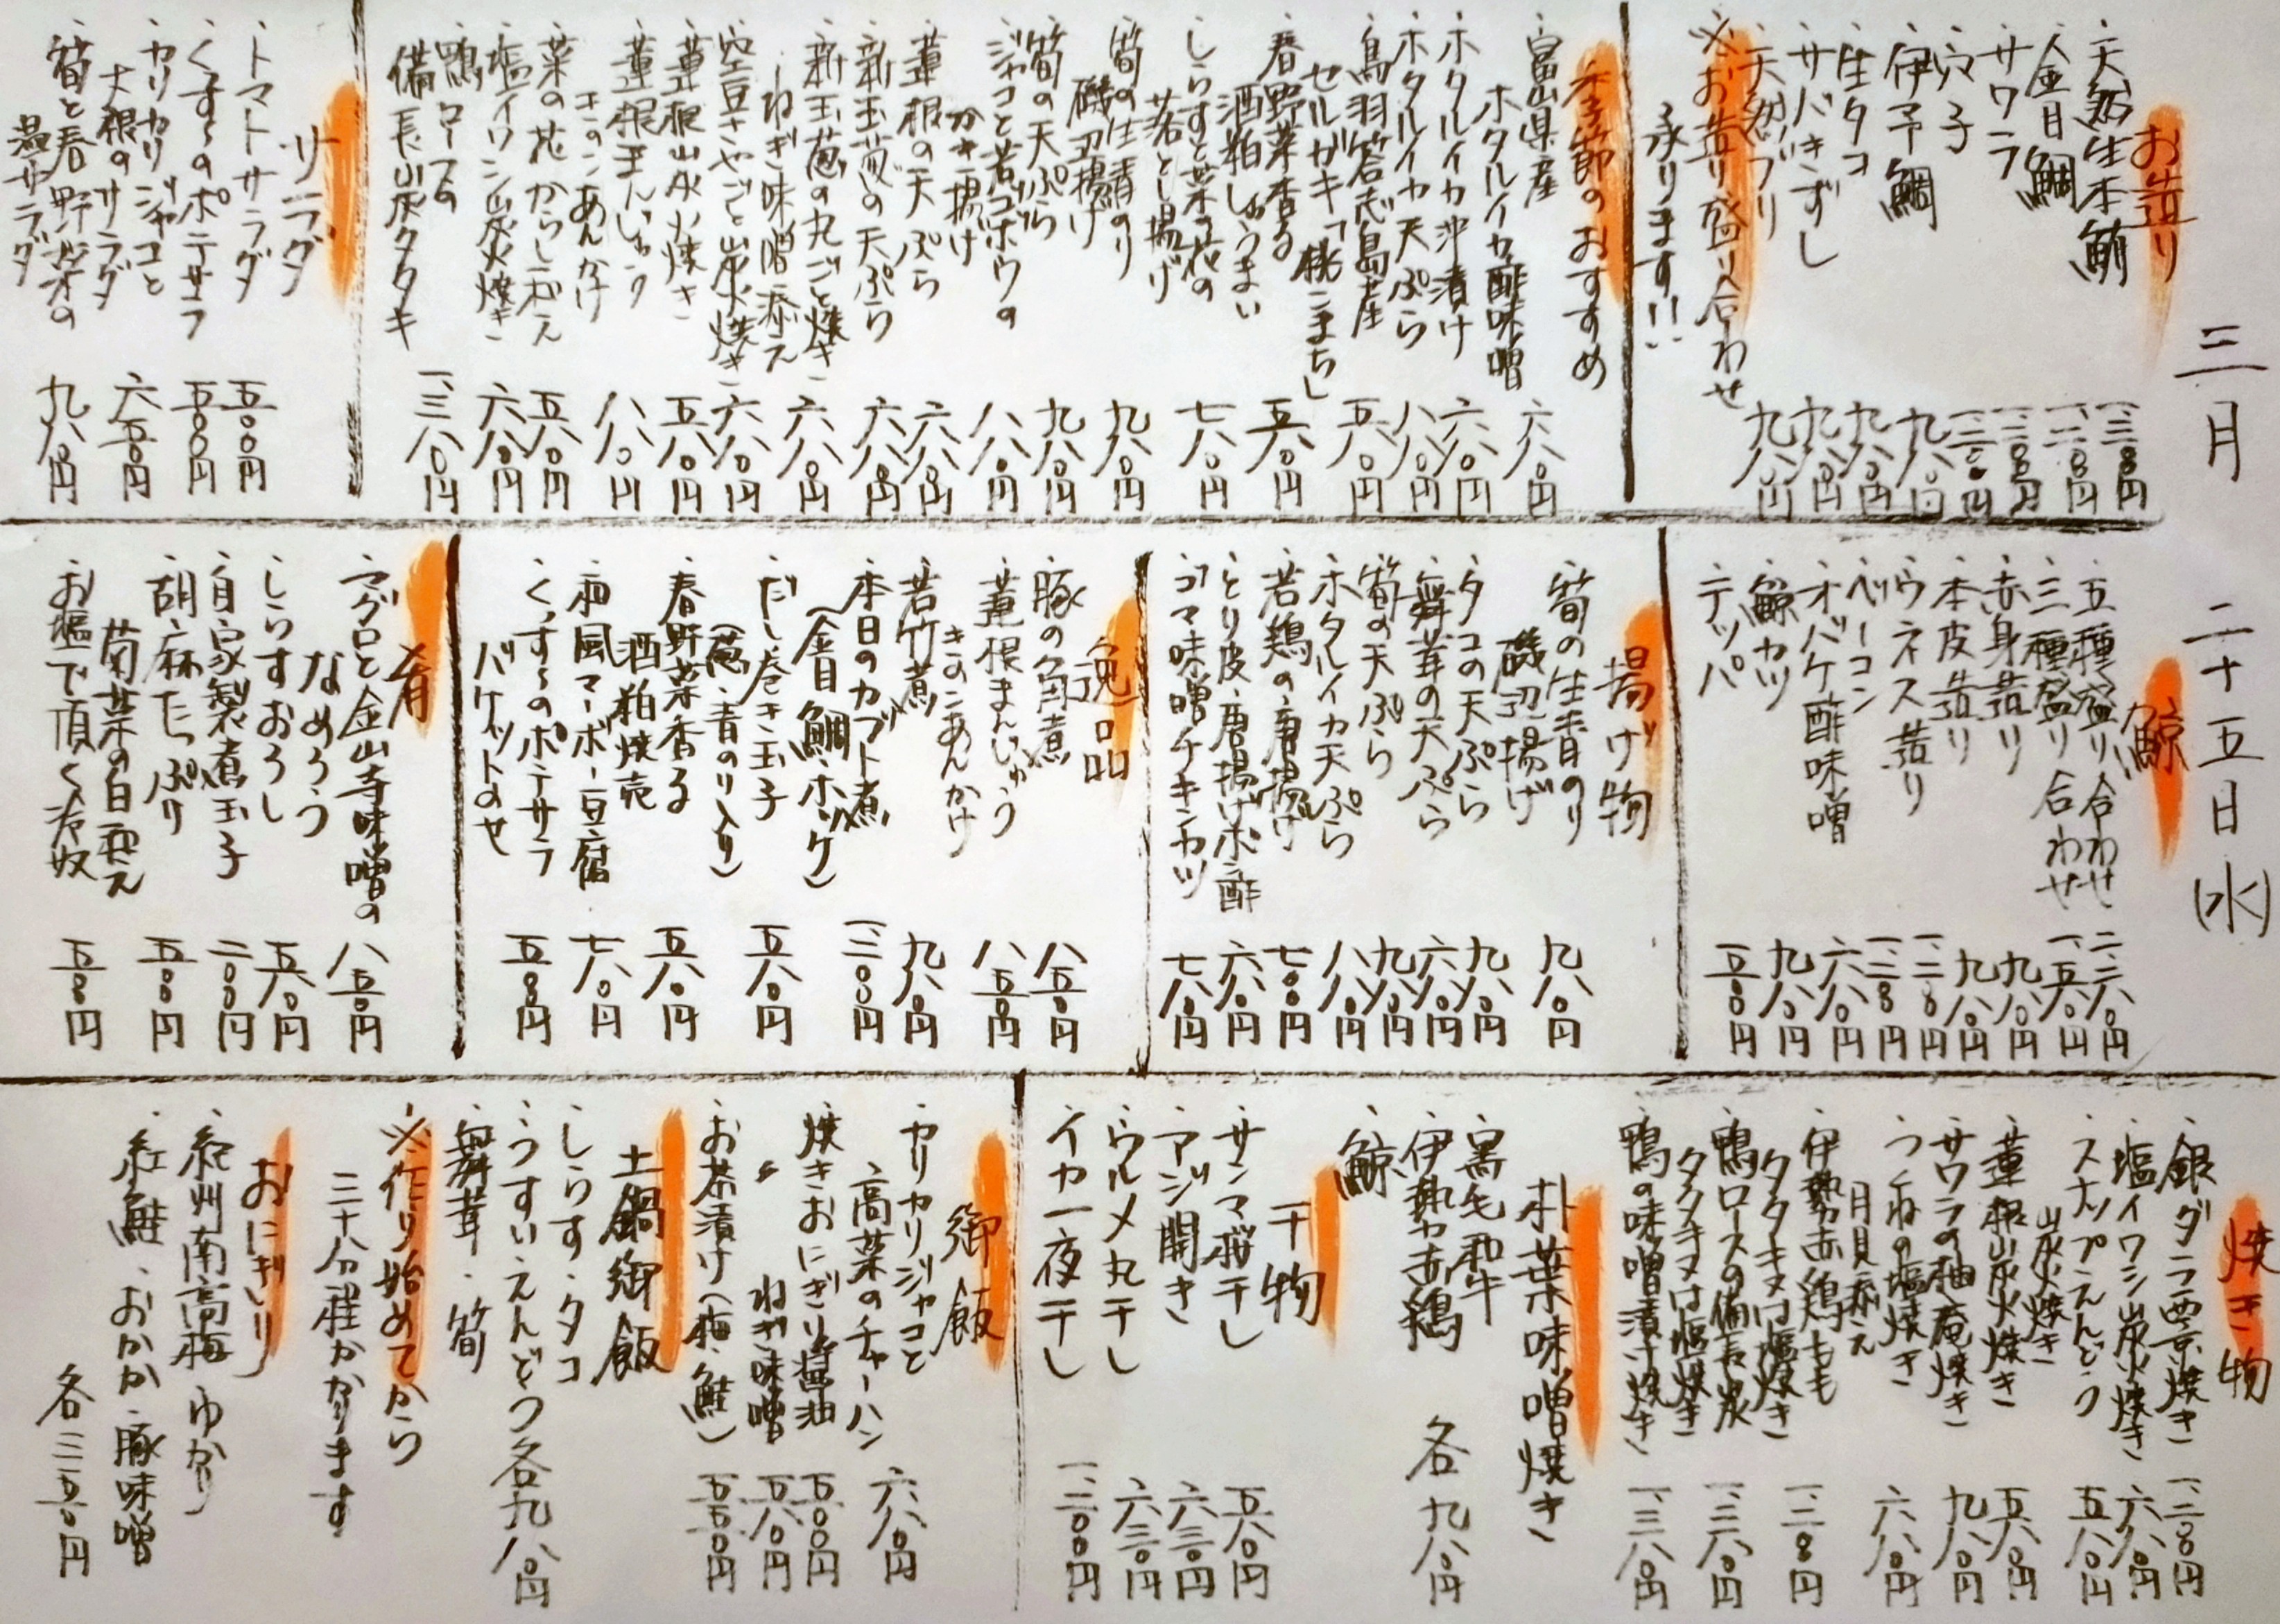 三月 二十五日(水)
お造り
・天然生本鮪 一、三〇〇円
・金目鯛 一、二〇〇円
・サワラ 一、二〇〇円
・穴子 一、二〇〇円
・伊予鯛 九八〇円
・生タコ 九八〇円
・サバきずし 九八〇円
・天然ブリ 九八〇円
※お造り盛り合わせ
承ります!!
季節のおすすめ
・富山県産
ホタルイカ酢味噌 六八〇円
・ホタルイカ沖漬け 六八〇円
・ホタルイカ天ぷら 八八〇円
・鳥羽答志島産
セルガキ「桃こまち」 五八〇円
・春野菜香る
酒粕しゅうまい 五八〇円
・しらすと菜の花の
落とし揚げ 七八〇円
・筍の生青のり
磯辺揚げ 九八〇円
・筍の天ぷら 九八〇円
・ジャコと若ゴボウの
かき揚げ 八八〇円
・蓮根の天ぷら 六八〇円
・新玉葱の天ぷら 六八〇円
・新玉葱の丸ごと焼き
ねぎ味噌添え 六八〇円
・空豆さやごと炭火焼き 六八〇円
・蓮根炭火焼き 五八〇円
・蓮根まんじゅう
きのこあんかけ 八八〇円
・菜の花からし和え 五八〇円
・塩イワシ炭火焼き 六八〇円
・鴨ロースの
備長炭タタキ 一、三八〇円
サラダ
・トマトサラダ 五〇〇円
・くずしのポテサラ 五〇〇円
・カリカリジャコと
大根のサラダ 六五〇円
・筍と春野菜の
温サラダ 九八〇円
鯨
・五種盛り合わせ 二、二八〇円
・三種盛り合わせ 一、五八〇円
・赤身造り 九八〇円
・本皮造り 九八〇円
・ウネス造り
・ベーコン
・オバケ酢味噌 六八〇円
・鯨カツ 九八〇円
・テッパ
揚げ物
・筍の生青のり
磯辺揚げ 九八〇円
・タコの天ぷら 九八〇円
・舞茸の天ぷら 六八〇円
・筍の天ぷら 九八〇円
・ホタルイカ天ぷら 八八〇円
・若鶏の唐揚げ 七〇〇円
・とり皮唐揚げポン酢 六八〇円
・ゴマ味噌チキンカツ 七八〇円
逸品
・豚の角煮 八五〇円
・蓮根まんじゅう
きのこあんかけ 八五〇円
・若竹煮 九八〇円
・本日のカブト煮
(金目鯛・ホッケ) 一、二〇〇円
・だし巻き玉子
(葱・青のり入り) 五八〇円
・春野菜香る
酒粕焼売 五八〇円
・和風マーボー豆腐 七八〇円
・くずしのポテサラ
バケットのせ 五〇〇円
肴
・マグロと金山寺味噌の
なめろう 八五〇円
・しらすおろし 五八〇円
・自家製煮玉子 二〇〇円
・胡麻たっぷり
菊菜の白和え 五〇〇円
・お塩で頂く冷奴 五〇〇円
焼き物
・銀ダラ西京焼き 一、二〇〇円
・塩イワシ炭火焼き 六八〇円
・スナップえんどう
炭火焼き 五八〇円
・蓮根炭火焼き 五八〇円
・サワラの柚庵焼き 九八〇円
・つくねの塩焼き
月見添え 六八〇円
・伊勢赤鶏もも
タタキ又は塩焼き
・鴨ロースの備長炭
タタキ又は塩焼き 一、三八〇円
・鴨の味噌漬け焼き 一、三八〇円
朴葉味噌焼き
・黒毛和牛
・伊勢赤鶏
・鯨
各九八〇円
干物
・サンマ桜干し 五八〇円
・アジ開き 六三〇円
・ウルメ丸干し 六三〇円
・イカ一夜干し 一、二〇〇円
御飯
・カリカリジャコと
高菜のチャーハン 六八〇円
・焼きおにぎり醤油 五〇〇円
・〃 ねぎ味噌 五八〇円
・お茶漬け(梅・鮭) 五五〇円
土鍋御飯
・しらす・タコ
・うすいえんどう
・舞茸・筍
各九八〇円
※作り始めてから
三十分程かかります
おにぎり
・紀州南高梅・ゆかり
・紅鮭・おかか・豚味噌
各三五〇円